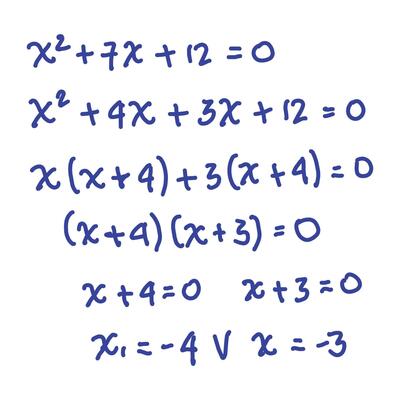 x² + 7x + 12 = 0
x² + 4x + 3x + 12 = 0
x(x+4) + 3(x+4) = 0
(x+4)(x+3) = 0
x + 4 = 0 x + 3 = 0
x₁ = -4 V x = -3